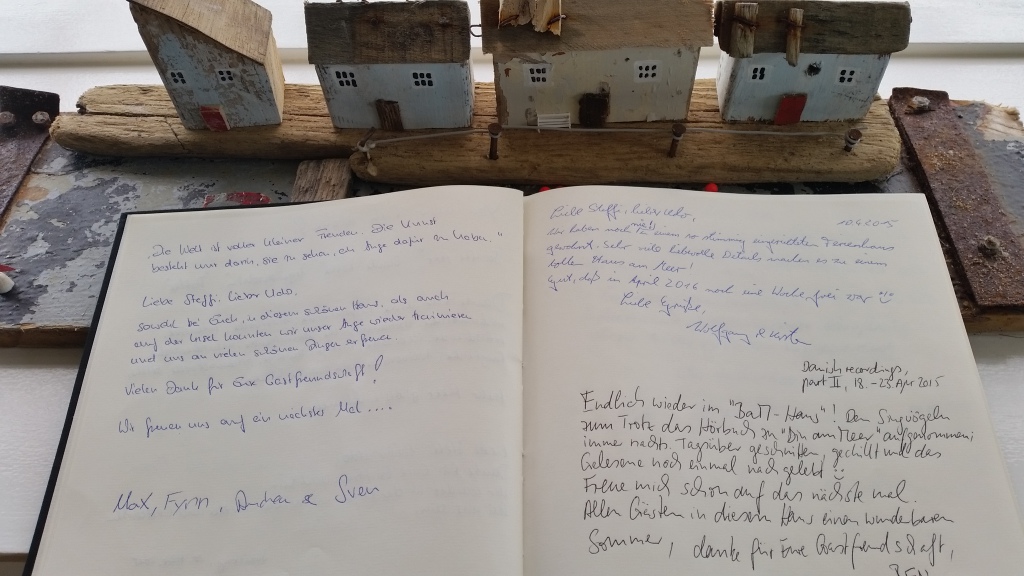 "Die Welt ist voller kleiner Freuden. Die Kunst
besteht nur darin, sie zu sehen, ein Auge dafür zu haben."
Liebe Steffi, lieber Udo,
sowohl bei Euch, in diesem schönen Haus, als auch
auf der Insel konnten wir unser Auge wieder trainieren
und uns an vielen schönen Dingen erfreuen.
Vielen Dank für Eure Gastfreundschaft!
Wir freuen uns auf ein nächstes Mal ....
Max, Fynn, Andrea & Sven
Liebe Steffi, lieber Udo, 10.4.2015
Wir haben noch nie in einem so stimmig eingerichteten Ferienhaus
gewohnt. Sehr viele liebevolle Details machen es zu einem
tollen Haus am Meer!
Gut, daß im April 2016 noch eine Woche frei war
Liebe Grüße,
Wolfgang &
Danish recordings,
part II, 18.-25 Apr 2015
Endlich wieder im "Batt-Haus"! Den Singvögeln
zum Trotz das Hörbuch zu "Bin am Meer" aufgenommen;
immer nachts. Tagsüber geschnitten, gechillt und das
Gelesene noch einmal nachgelebt
Freue mich schon auf das nächste mal.
Allen Gästen in diesem Haus einen wunderbaren
Sommer, danke für Eure Gastfreundschaft,